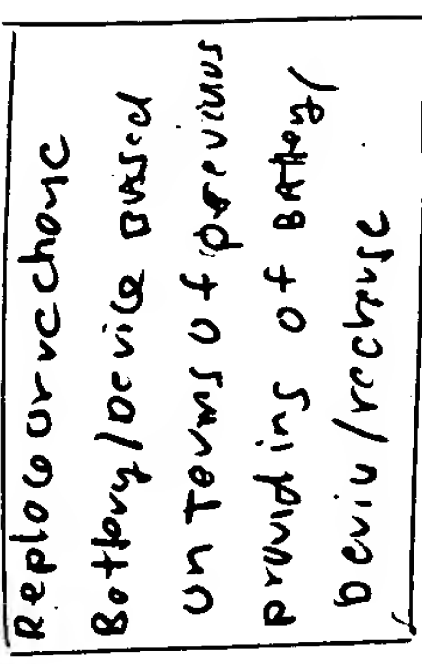 Replace or recharge
Battery/Device Based
on Terms of previous
providing of Battery/
Device/recharge